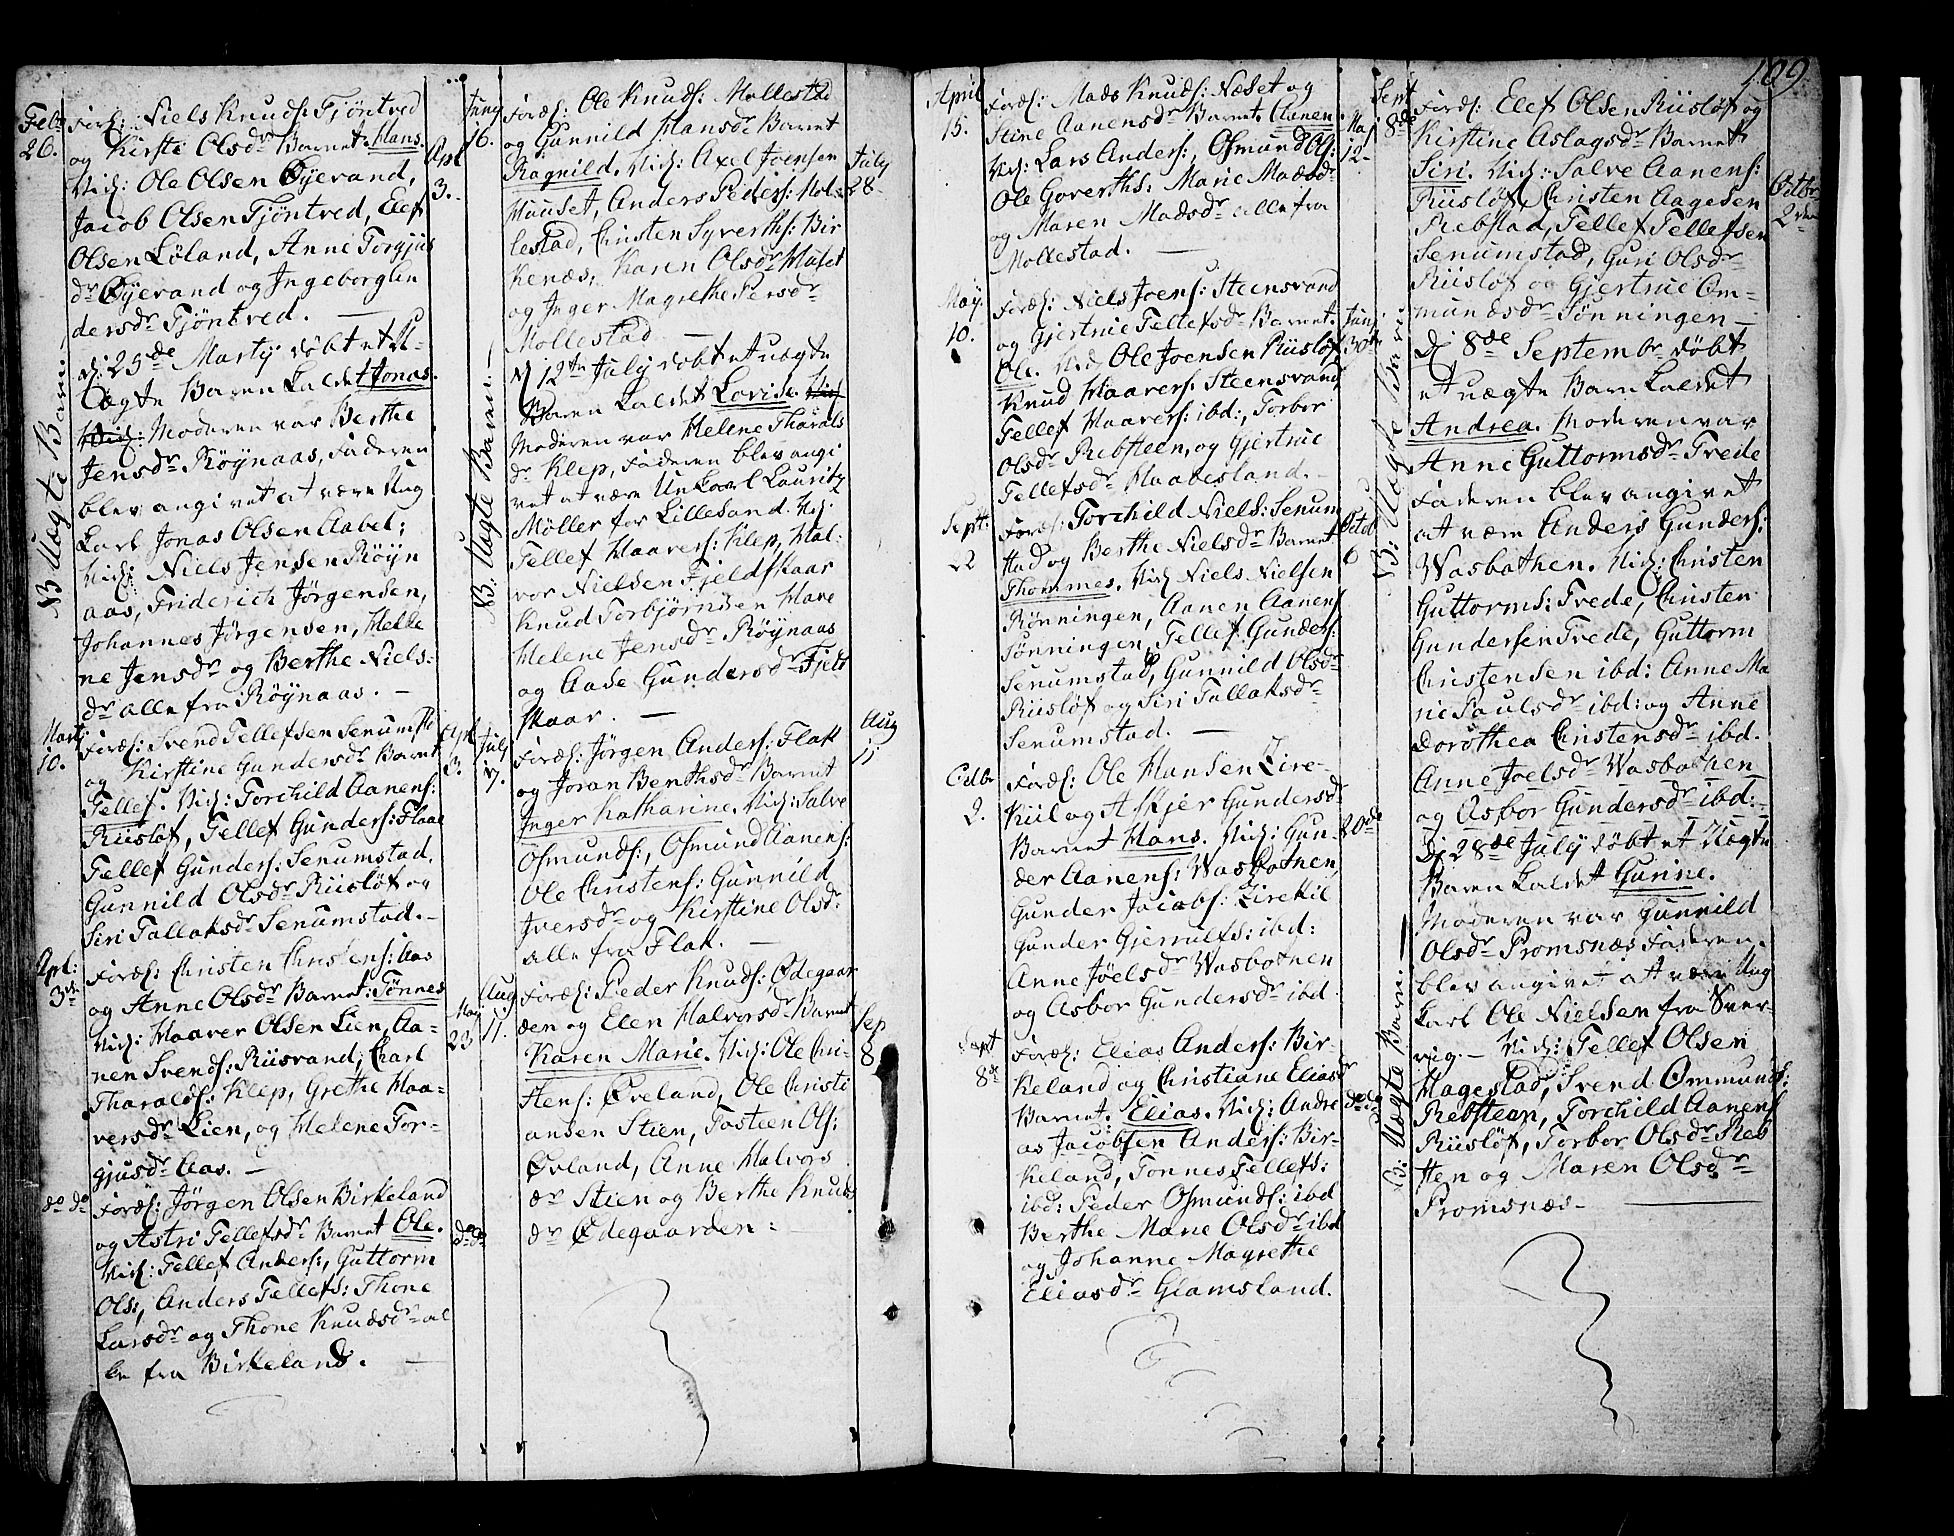 109
Feb:
26.
Foræl: Niels Knuds: Tjöntved
og Kirsti Olsdr Barnet. Hans.
Vid: Ole Olsen Öÿevand,
Jacob Olsen Tjöntved, Elef
Olsen Löland, Anne Torgius
dr Öÿevand og Ingeborg An
dersdr Tjöntved. —
Apl
3.
NB Uægte Barn.
dj 25de Martÿ döbt et U-
ægte Barn kaldet Jonas.
Vid: Moderen var Berthe
Jensdr Röÿnaas, Faderen
blev angivet at være Ung
karl Jonas Olsen Aabel;
Vid: Niels Jensen Röÿn
aas, Friderich Jörgensen,
Johannes Jörgensen, Helle
ne Jensdr og Berthe Niels:
dr alle fra Röÿnaas. —
Marti
10.
Foræl: Svend Tellefsen Senumsta
og Kirstine Gundersdr Barnet
Tellef. Vid: Torchild Aanens:
Riisløf, Tellef Gunders: Flaae
Tellef Gunders: Senumstad,
Gunnild Olsdr Riisløf og
Siri Tallaksdr Senumstad. —
Apl
3.
Apl:
3de
Foræl: Christen Christens: Aas
og Anne Olsdr Barnet: Tönnes
Vid: Haaver Olsen Lien, Aa-
nen Svends: Riisvand, Carl
Tharalds: Klep, Grethe Haa-
versdr Lien, og Helene Tor-
gjusdr Aas. —
May
23
do do
Foræl: Jörgen Olsen Birkeland
og Astri Tellefsdr Barnet Ole.
Vid: Tellef Anders:, Guttorm
Ols:, Anders Tellefs: Thone
Larsdr og Thone Knudsdr al
le fra Birkeland. —
do do
Juny
16.
Foræl: Ole Knuds: Mollestad
og Gunnild Hansdr Barnet
Ragnild. Vid: Axel Joensen
Huuset, Anders Peders: Mol-
lestad, Christen Syverths: Bir
kenæs, Karen Olsdr Huset
og Inger Magrethe Persdr
Mollestad —
July
28.
NB: Uægte Barn. —
dj 12te July döbt et uægte
Barn kaldet Lovise. Vid
Moderen var Helene Tharals
dr Klep, Faderen blev angi
vet at være Unkarl Lauritz
Möller for Lillesand. Vid.
Tellef Haavers: Klep, Hal-
vor Nielsen Fjeldskaar
Knud Torbjörnsen Hane
Helene Jensdr Röÿnaas
og Aase Gundersdr Fjeld
skaar. —
July
7.
Foræl: Jörgen Anders: Flak
og Joran Berthsdr Barnet
Inger Katharine. Vid: Salve
Osmunds:, Osmund Aanens:
Ole Christens: Gunnild
Iversdr og Kirstine Olsdr
alle fra Flak. —
Aug
11
Aug
11.
Foræl: Peder Knuds: Ødegaar
den og Elen Halvorsdr Barnet
Karen Marie. Vid: Ole Chri-
stens: Øveland, Ole Christi
ansen Stien, Tosteen Ols:
Øvland, Anne Halvors
dr Stien og Berthe Knuds
dr Ødegaarden: —
Sep
8
April
15.
Foræl: Mads Knuds: Næset og
Stine Aanensdr Barnet. Aanen
Vid: Lars Anders:, Osmund Ols:
Ole Goverths: Marie Madsdr
og Maren Madsdr alle fra
Mollestad. —
Maj
12.
May.
10.
Foræl: Niels Joens: Steensvand
og Gjertrue Tellefsdr Barnet.
Ole. Vid Ole Joensen Riisløf
Knud Haavers: Steensvand
Tellef Haavers: ibd:, Torbor
Olsdr Rebsteen, og Gjertrue
Tellefsdr Haabesland. —
Junj
30te
Septt:
22
Foræl: Torchild Niels: Senum
stad og Berthe Nielsdr Barnet
Thommes. Vid Niels Nielsen
Rönningen, Aanen Aanens
Tönningen, Tellef Gunders:
Senumstad, Gunnild Olsdr
Riisløf og Siri Tallaksdr
Senumstad. —
Octob
6
Octbr
2.
Foræl: Ole Hansen Lire-
kiil og Askjer Gundersdr
Barnet Hans. Vid: Gun-
der Aanens: Wasbotnen
Gunder Jacobs: Lirekil
Gunder Gjerrulfs: ibd:
Anne Jöelsdr Wasbotnen
og Asbor Gundersdr ibd
20de
Sept
8de
Foræl: Elias Anders: Bir-
keland og Christiane Eliasdr
Barnet. Elias. Vid: Andre
as Jacobsen Anders: Bir-
keland, Tonnes Tellefs:
ibd: Peder Osmunds: ibd
Berthe Marie Olsdr ibd
og Johanne Magrethe
Eliasdr Glamsland.
do do
Sept
8de
Foræl: Elef Olsen Riisløf og
Kirstine Aslagsdr Barnet
Siri. Vid: Salve Aanens:
Riisløf, Christen Aagesen
Rebstad, Tellef Tellefsen
Senumstad, Guri Olsdr
Riisløf og Gjertrue Om-
mundsdr Tönningen —
Octbr
2den
NB: Uægte Barn.
Dj 8de Septembr döbt
et uægte Barn kaldet
Andrea. Moderen var
Anne Guttormsdr Trede
Faderen blev angivet
at være Anders Gunders:
Wasbothen. Vid: Christen
Guttorms: Trede, Christen
Gundersen Trede, Guttorm
Christensen ibd: Anne Ma
rie Paulsdr ibd: og Anne
Dorothea Christensdr ibd.
Anne Joelsdr Wasbothen
og Asbor Gundersdr ibd: —
NB: Uægte Barn —
Dj 28de July döbt et Uægte
Barn kaldet Gunne.
Moderen var Gunnild
Olsdr Promsnæs Faderen
blev angivet at være Ung
karl Ole Nielsen fra Sver-
vig. — Vid: Tellef Olsen
Hagestad, Svend Ommunds:
Rebsteen, Torchild Aanens
Riisløf, Torbor Olsdr Reb
sten og Maren Olsdr
Promsnæs. —